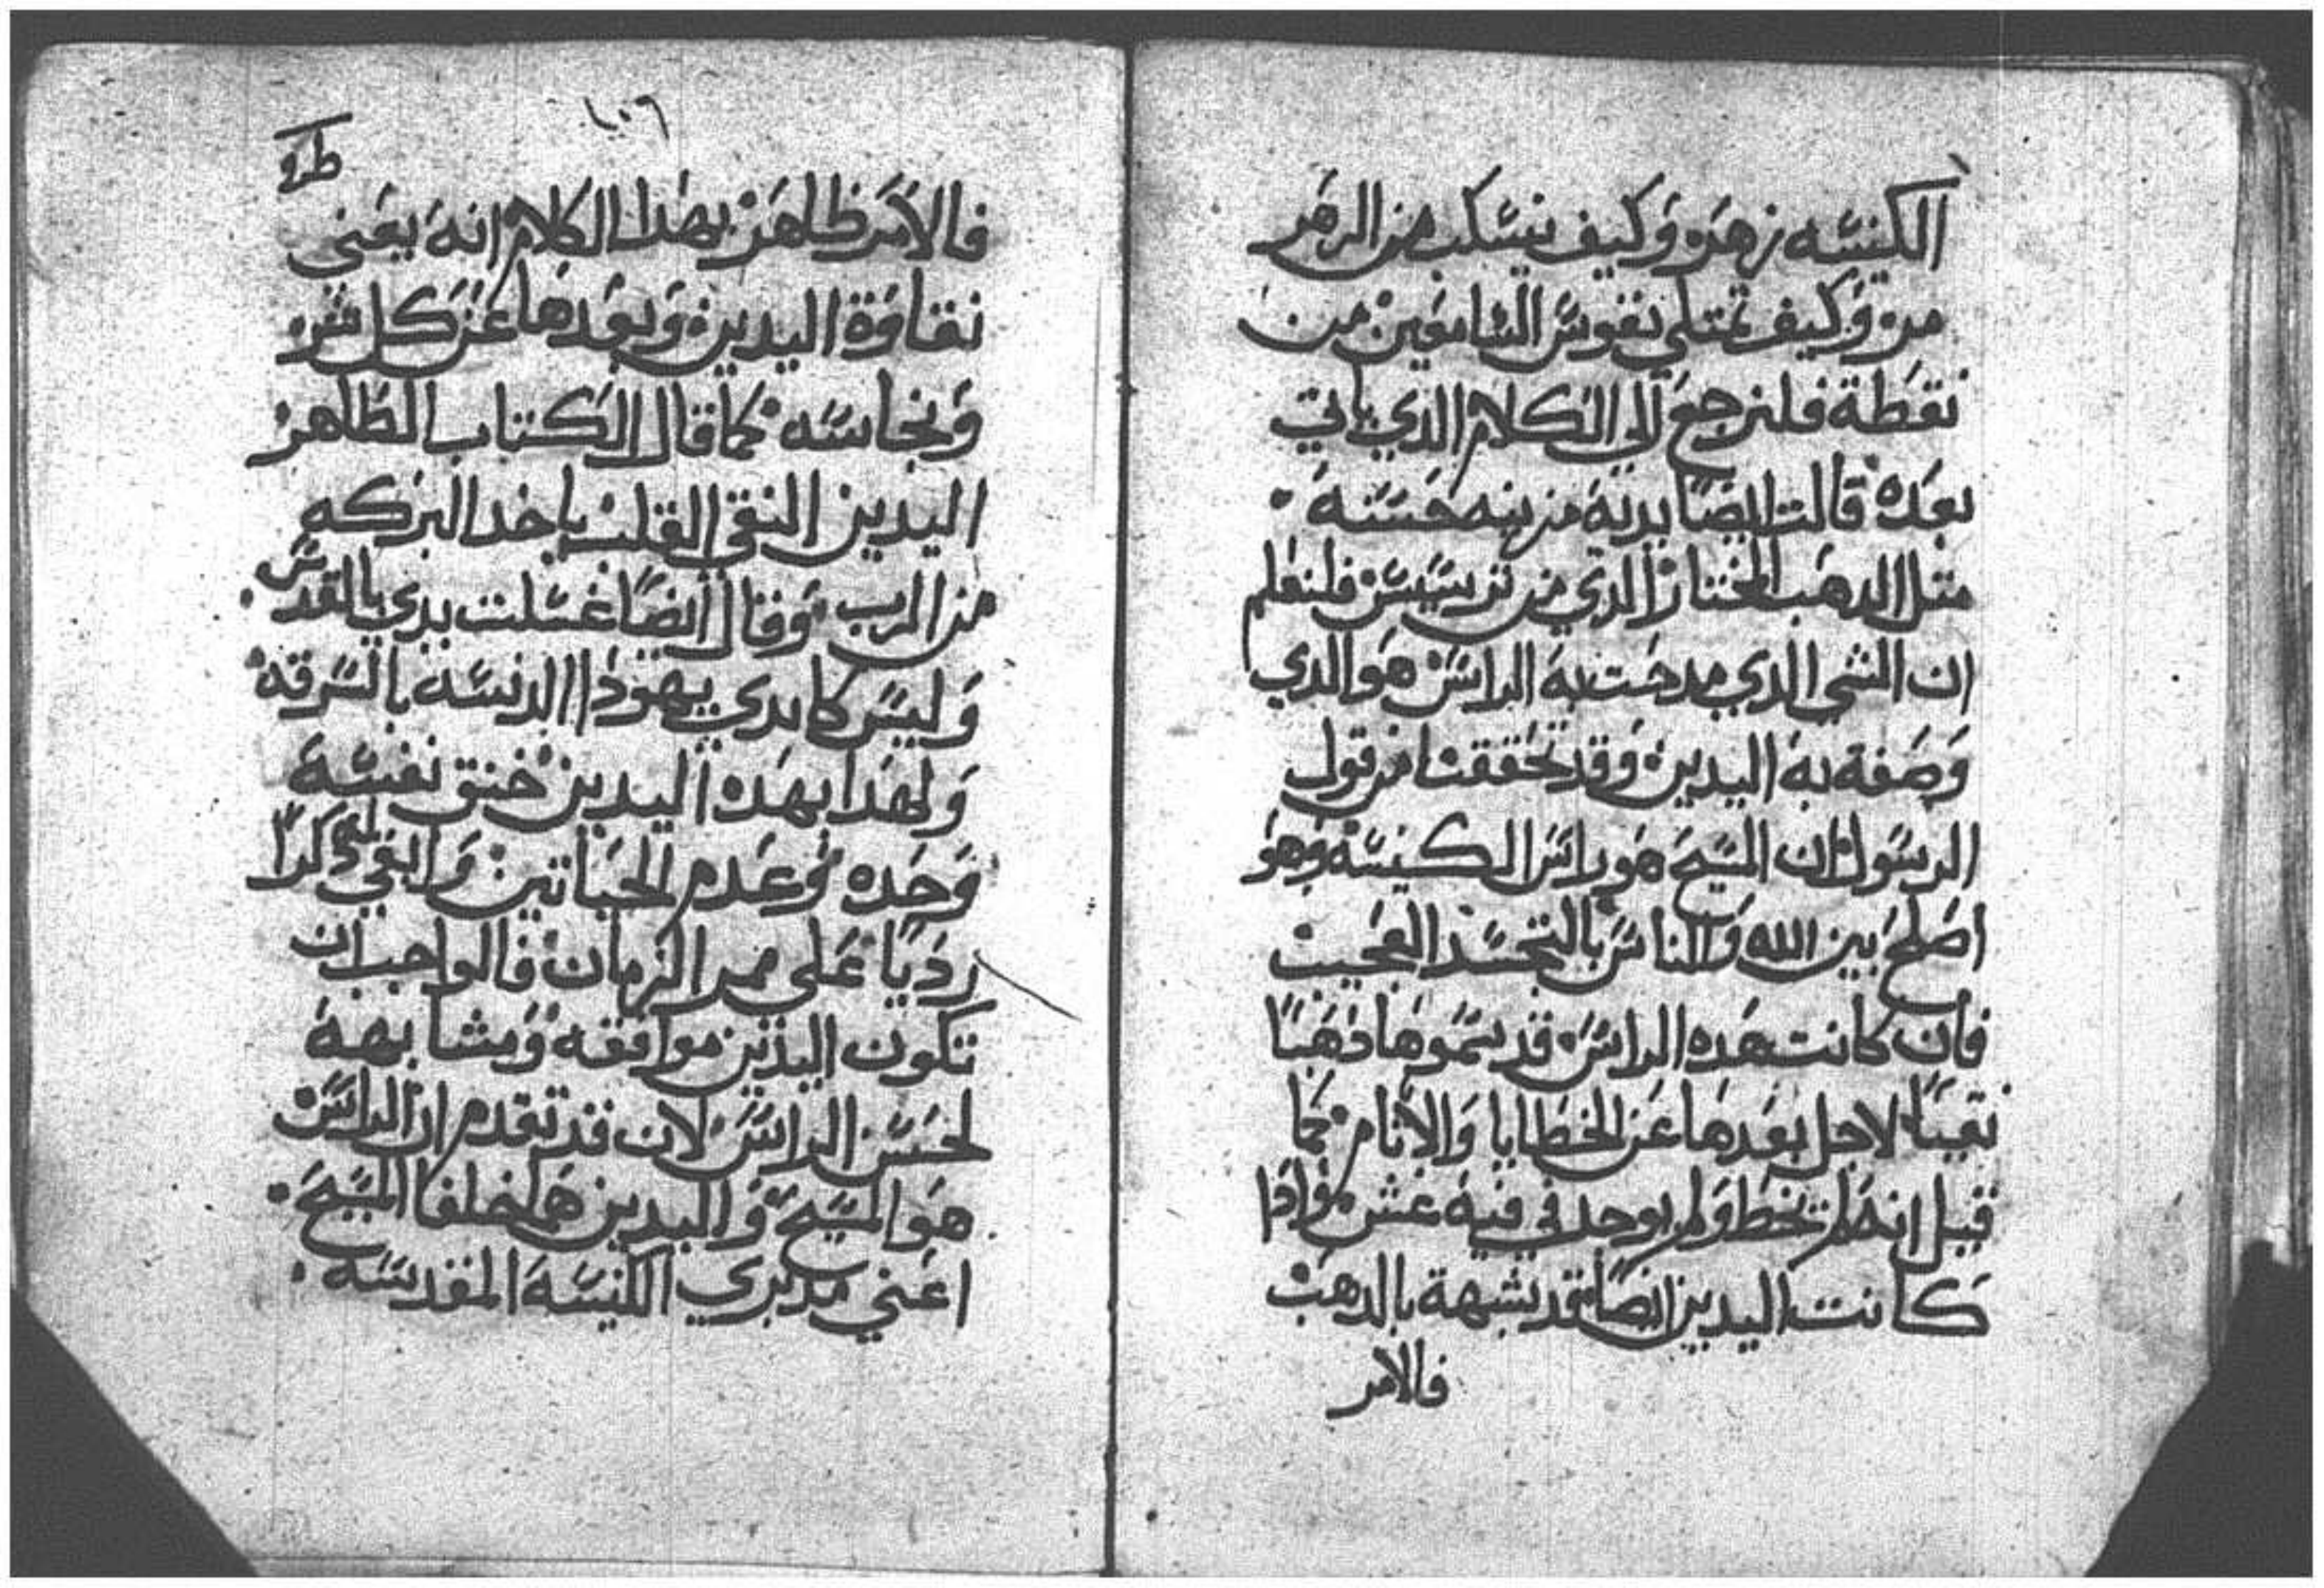 الكنيسه زهره وكيف ينسكب من الزهر
مره وكيف تمتلي نفوس السامعين من
نقطة فلنرجع الي الكلام الذي ياتي
بعده قالت ايضًا يديه مزينه حسنه
متل الدهب المختار الذي من ترسيس فلنعلم
ان الشي الذي مدحت به الراس هو الذي
وصفة به اليدين وقد تحققنا من قول
الرسول ان المسيح هو راس الكنيسه وهو
اصلح بين الله والناس بالتجسد العجيب
فان كانت هده الراس قد سموها ذهبًا
نقيًا لاجل بعدها عن الخطايا والاثام كما
قيل انه لم يخط ولم يوجد في فيه غش واذا
كانت اليدين ايضًا قد يشبهة بالدهب
فالامر
١٠٦
فالامر ظاهر بهدا الكلام انه يعني
نقاوة اليدين وبعدها عن كل شره
ونجاسه كما قال الكتاب الطاهر
اليدين النقي القلب ياخد البركه
من الرب وقال ايضًا غسلت يدي بالقدس
وليس كايدي يهودا الدنسه بالسرقه
ولهدا بهده اليدين خنق نفسه
وحده وعدم الحياتين وابقي له ذكرًا
رديًا علي ممر الزمان فالواجب ان
تكون اليدين موافقه ومشابهه
لحسن الراس لان قد تقدم ان الراس
هو المسيح واليدين هم خلفا المسيح
اعني مدبري الكنيسه المقدسه